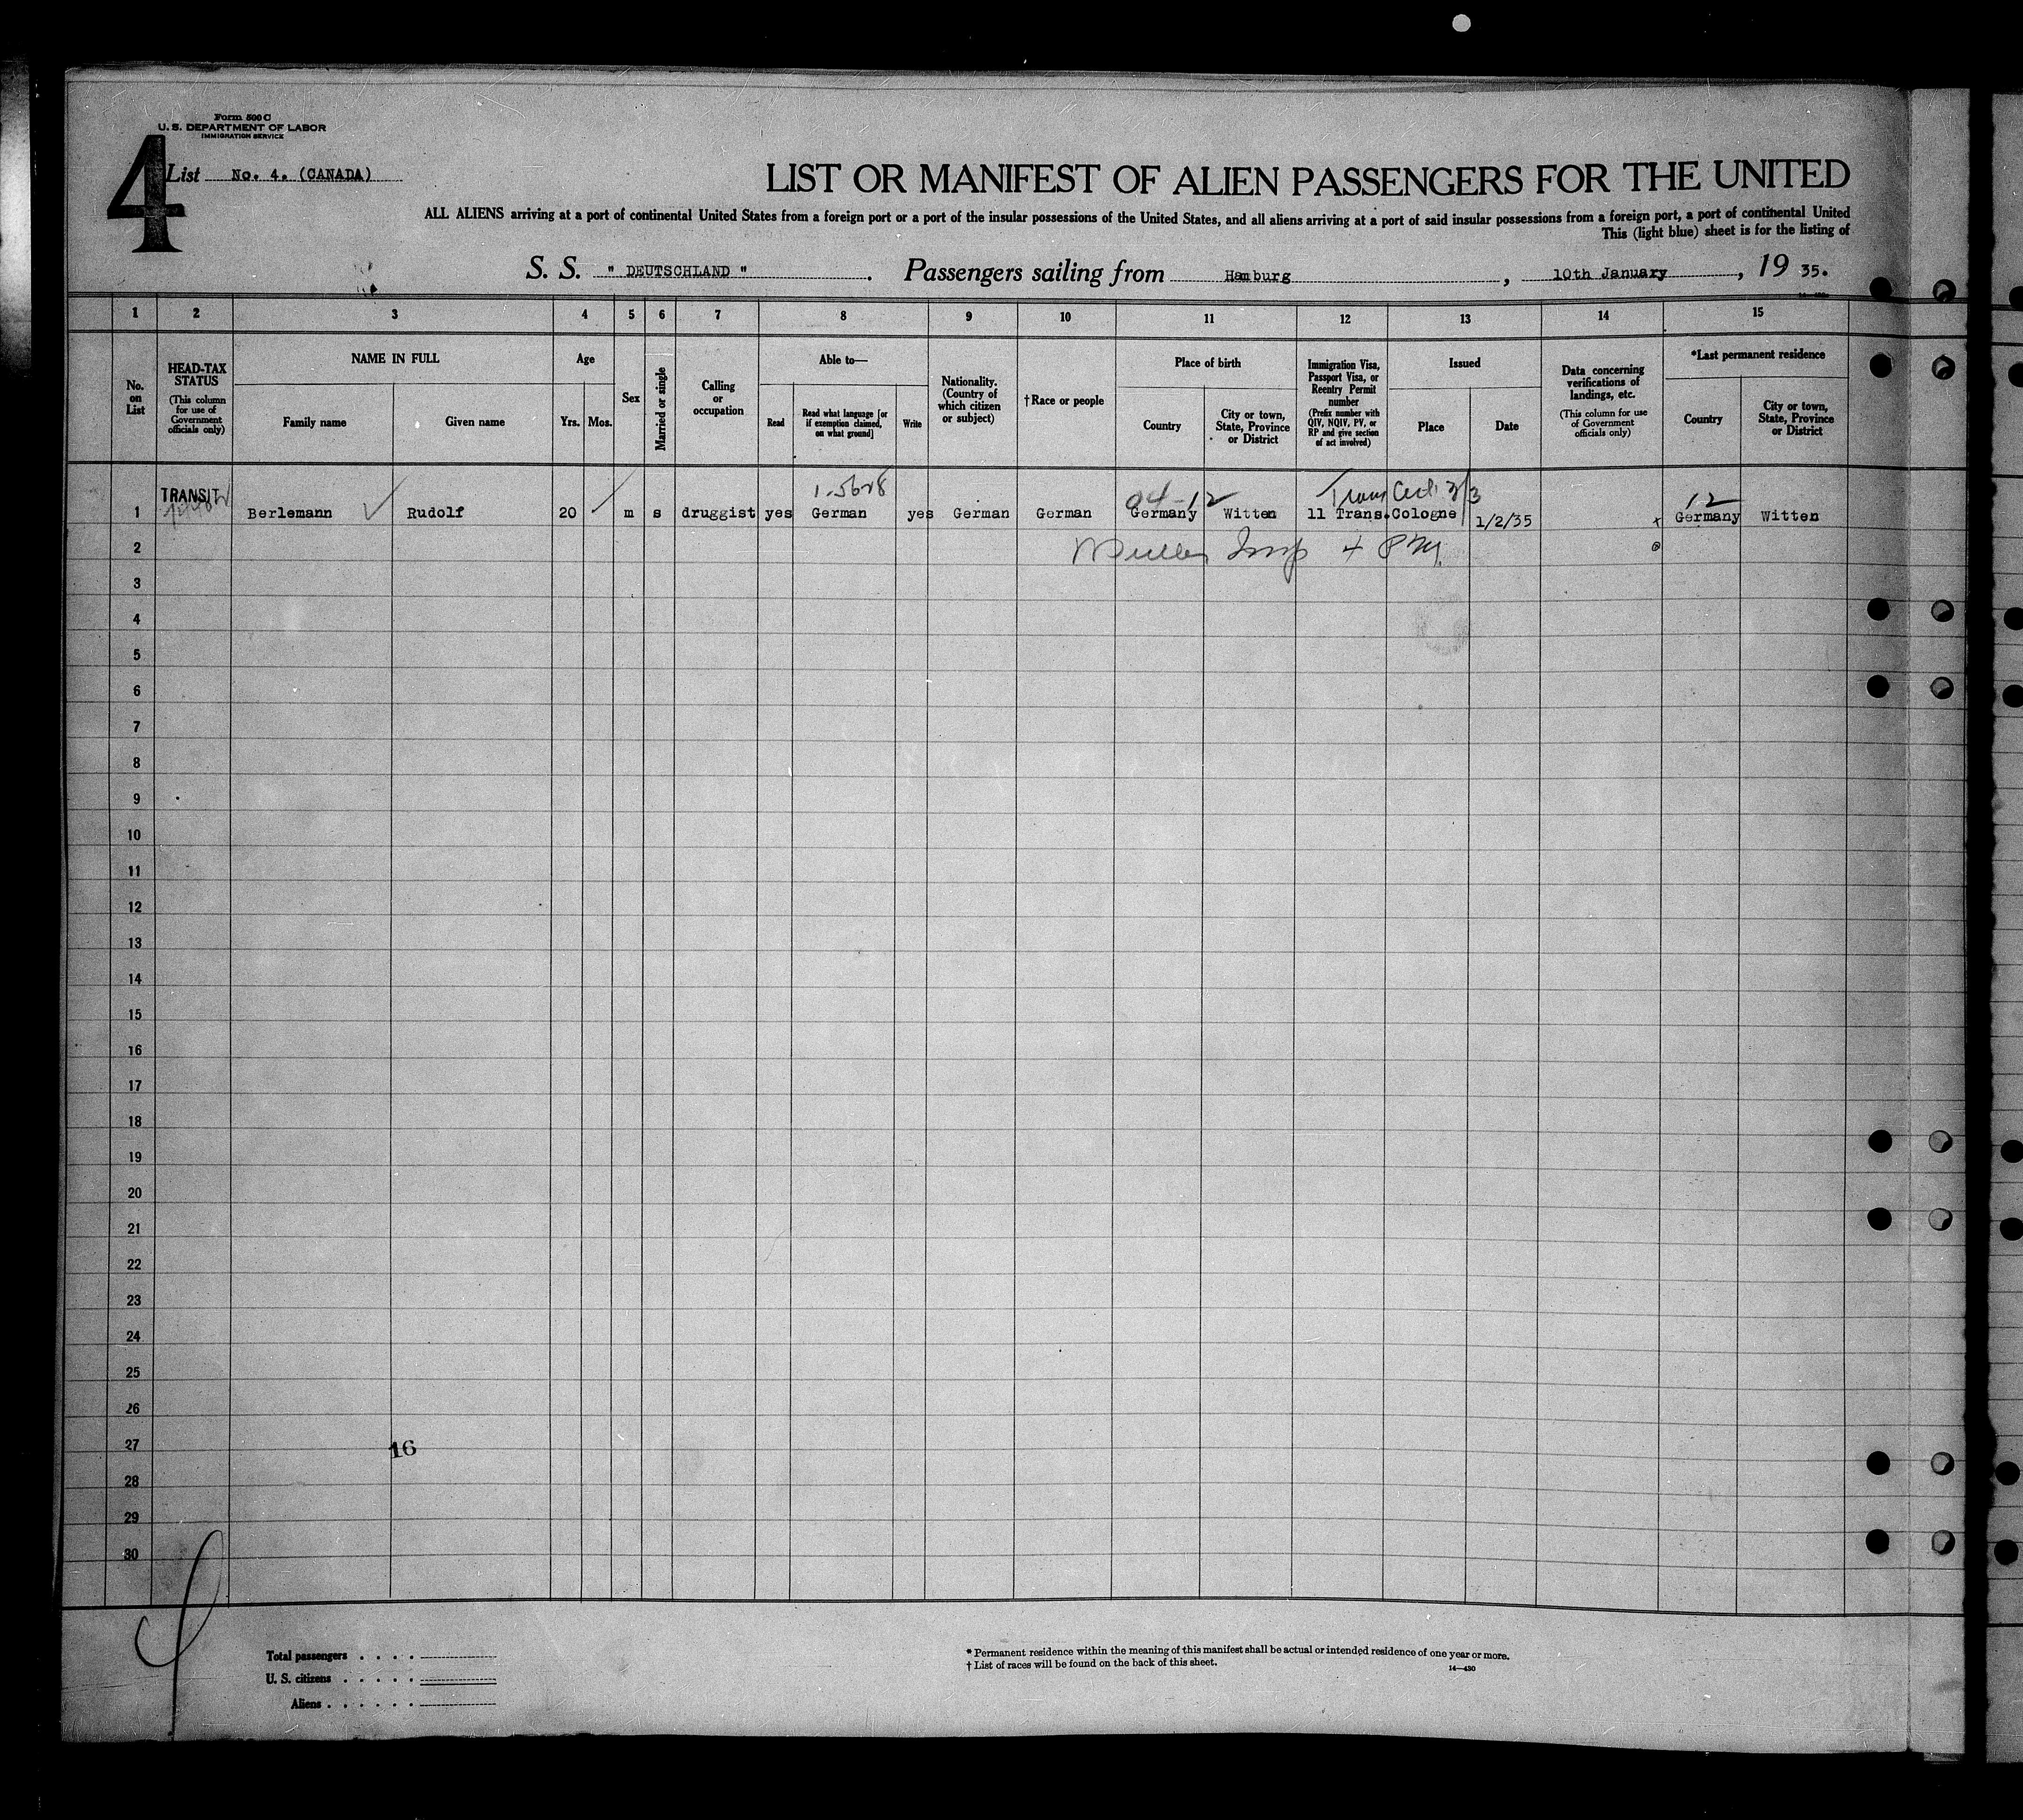 Form 500 C
U. S. DEPARTMENT OF LABOR
IMMIGRATION SERVICE
4
List No. 4. (CANADA)
LIST OR MANIFEST OF ALIEN PASSENGERS FOR THE UNITED
ALL ALIENS arriving at a port of continental United States from a foreign port or a port of the insular possessions of the United States, and all aliens arriving at a port of said insular possessions from a foreign port, a port of continental United
This (light blue) sheet is for the listing of
S. S. " DEUTSCHLAND ". Passengers sailing from Hamburg, 10th January, 19 35.
1 2 3 4 5 6 7 8 9 10 11 12 13 14 15
No. on List
HEAD-TAX STATUS
(This column for use of Government officials only)
NAME IN FULL
Family name
Given name
Age
Yrs. Mos.
Sex
Married or single
Calling or occupation
Able to—
Read
Read what language [or if exemption claimed, on what ground]
Write
Nationality. (Country of which citizen or subject)
†Race or people
Place of birth
Country
City or town, State, Province or District
Immigration Visa, Passport Visa, or Reentry Permit number
(Prefix number with QIV, NQIV, PV, or RP and give section of act involved)
Issued
Place
Date
Data concerning verifications of landings, etc.
(This column for use of Government officials only)
*Last permanent residence
Country
City or town, State, Province or District
TRANSIT
04-12
Trans Cert 3/3
12
1 Berlemann Rudolf 20 m s druggist yes German yes German German Germany Witten 11 Trans. Cologne 1/2/35 x Germany Witten
2
3
4
5
6
7
8
9
10
11
12
13
14
15
16
17
18
19
20
21
22
23
24
25
26
27
16
28
29
30
Total passengers . . . .
U. S. citizens . . . . .
Aliens . . . . . .
* Permanent residence within the meaning of this manifest shall be actual or intended residence of one year or more.
† List of races will be found on the back of this sheet.
14—430